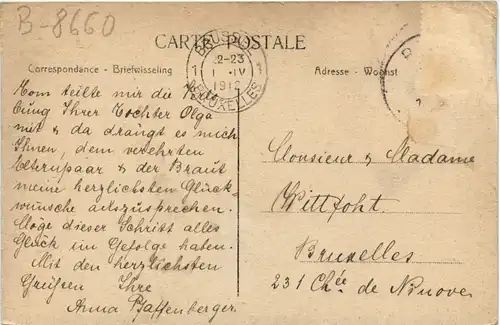 B-8660
CARTE POSTALE
BRUSSEL
22-23
1 1
1 IV
1912
BRUXELLES
Correspondance - Briefwisseling
Adresse - Woonst
Kom teilte mir die Verlo
bung Ihrer Tochter Olga
mit & da drängt es mich
Ihnen, dem verehrten
Elternpaar & der Braut
meine herzlichsten Glück-
wünsche auszusprechen.
Möge dieser Schritt alles
Glück im Gefolge haben.
Mit den herzlichsten
Grüßen Ihre
Anna Pfaffenberger
Monsieur & Madame
Wittfoht.
Bruxelles
231 Chée de Ninove